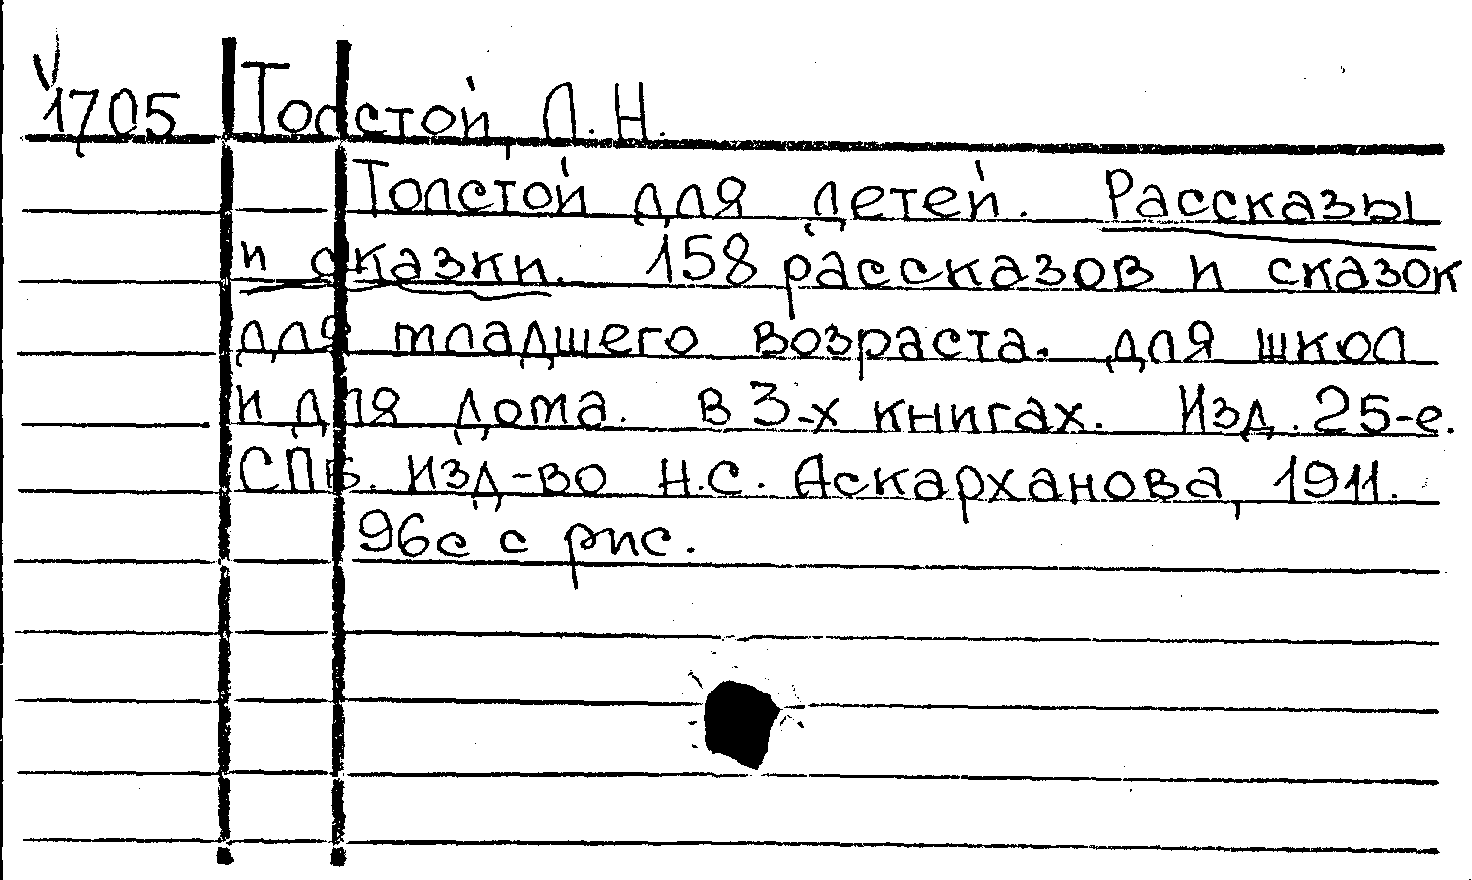 V
1705 Толстой, Л. Н.
Толстой для детей. Рассказы
и сказки. 158 рассказов и сказок
для младшего возраста. для школ
и для дома. в 3-х книгах. Изд. 25-е.
СПб. изд-во Н.С. Аскарханова, 1911.
96с с рис.